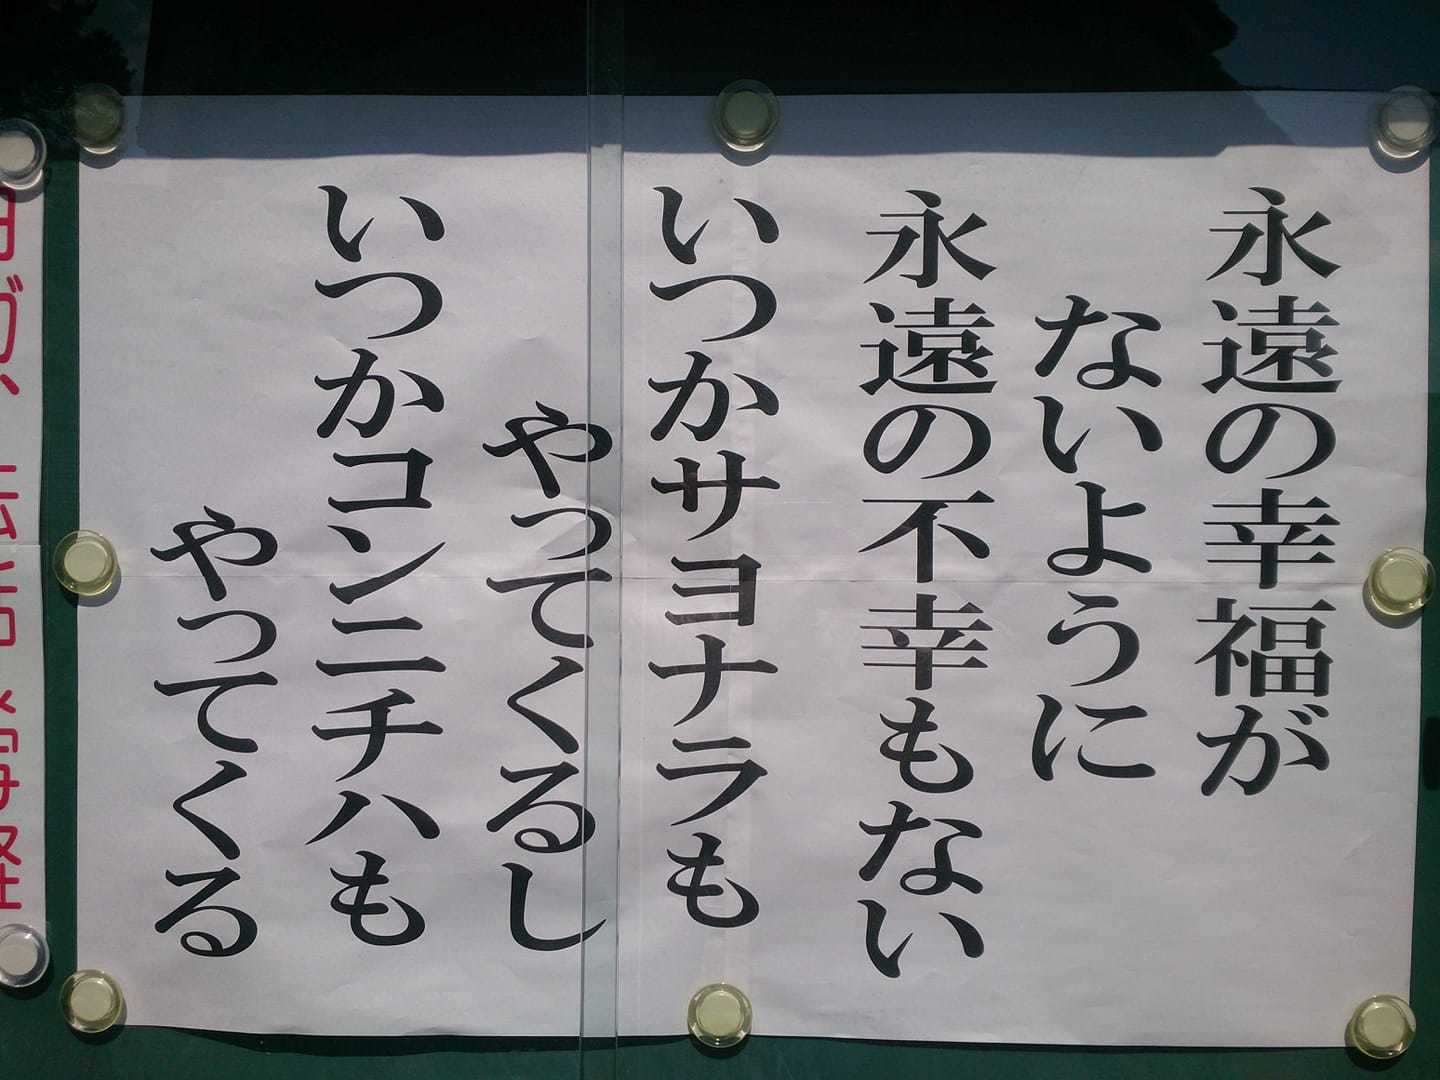 永遠の幸福が
ないように
永遠の不幸もない
いつかサヨナラも
やってくるし
いつかコンニチハも
やってくる